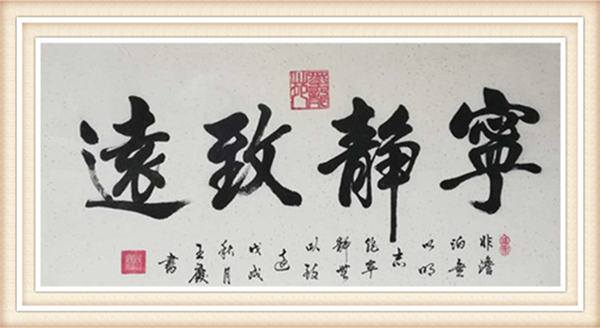 寧靜致遠
非澹
泊無
以明
志
寧
靜無
以致
遠
戊戌
秋月
王
書